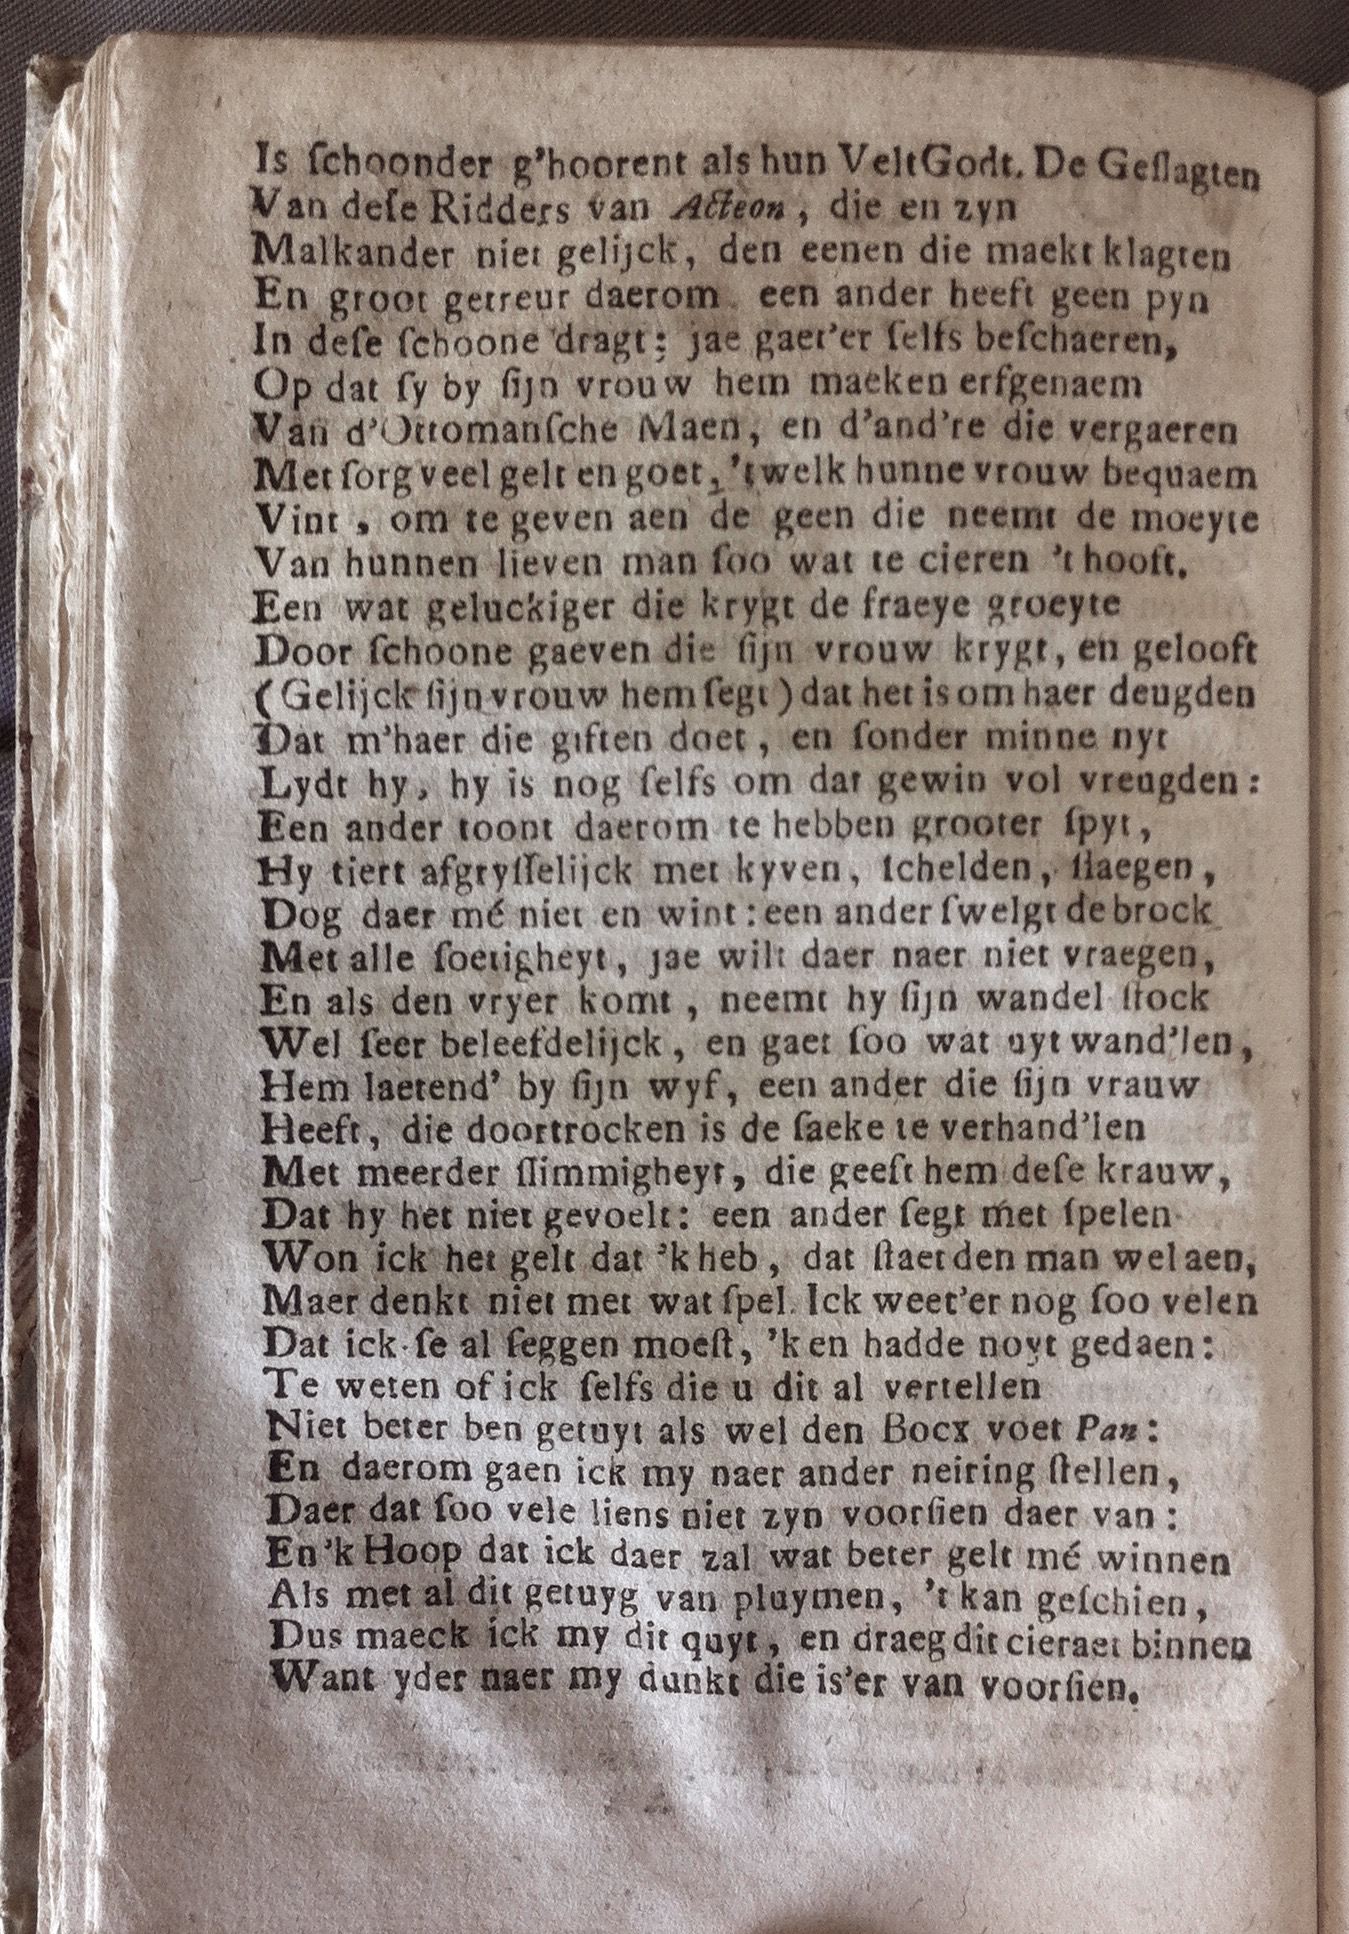 Is ſchoonder g'hoorent als hun VeltGodt. De Geſlagten
Van deſe Ridders van Acteon, die en zyn
Malkander niet gelijck, den eenen die maekt klagten
En groot getreur daerom een ander heeft geen pyn
In deſe ſchoone dragt; jae gaet'er ſelfs beſchaeren,
Op dat ſy by ſijn vrouw hem maeken erfgenaem
Van d'Ottomanſche Maen, en d'and're die vergaeren
Met ſorg veel gelt en goet, 't welk hunne vrouw bequaem
Vint, om te geven aen de geen die neemt de moeyte
Van hunnen lieven man ſoo wat te cieren 't hooft.
Een wat geluckiger die krygt de fraeye groeyte
Door ſchoone gaeven die ſijn vrouw krygt, en gelooft
(Gelijck ſijn vrouw hem ſegt) dat het is om haer deugden
Dat m'haer die giften doet, en ſonder minne nyt
Lydt hy, hy is nog ſelfs om dat gewin vol vreugden:
Een ander toont daerom te hebben grooter ſpyt,
Hy tiert afgryſſelijck met kyven, ſchelden, ſlaegen,
Dog daer mé niet en wint: een ander ſwelgt de brock
Met alle ſoetigheyt, jae wilt daer naer niet vraegen,
En als den vryer komt, neemt hy ſijn wandel ſtock
Wel ſeer beleefdelijck, en gaet ſoo wat uyt wand'len,
Hem laetend' by ſijn wyf, een ander die ſijn vrauw
Heeft, die doortrocken is de ſaeke te verhand'len
Met meerder ſlimmigheyt, die geeft hem deſe krauw,
Dat hy het niet gevoelt: een ander ſegt met ſpelen
Won ick het gelt dat 'k heb, dat ſtaet den man wel aen,
Maer denkt niet met wat ſpel. Ick weet'er nog ſoo velen
Dat ick ſe al ſeggen moeſt, 'k en hadde noyt gedaen:
Te weten of ick ſelfs die u dit al vertellen
Niet beter ben getuyt als wel den Bocx voet Pan:
En daerom gaen ick my naer ander neiring ſtellen,
Daer dat ſoo vele liens niet zyn voorſien daer van:
En 'k Hoop dat ick daer zal wat beter gelt mé winnen
Als met al dit getuyg van pluymen, 't kan geſchien,
Dus maeck ick my dit quyt, en draeg dit cieraet binnen
Want yder naer my dunkt die is'er van voorſien.